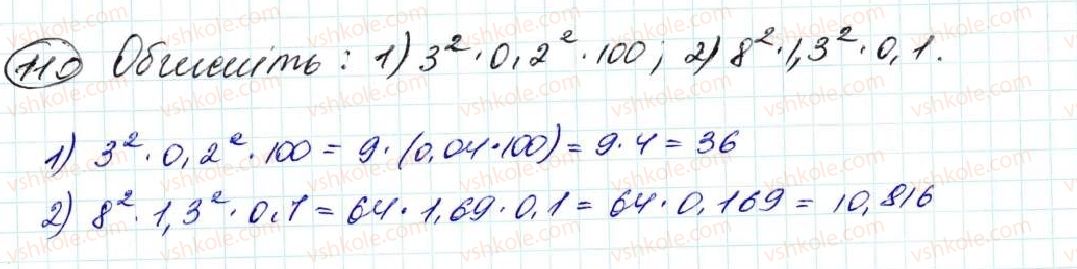 110 Обчисліть: 1) 3² · 0,2² · 100; 2) 8² · 1,3² · 0,1.
1) 3² · 0,2² · 100 = 9 · (0,04 · 100) = 9 · 4 = 36
2) 8² · 1,3² · 0,1 = 64 · 1,69 · 0,1 = 64 · 0,169 = 10,816